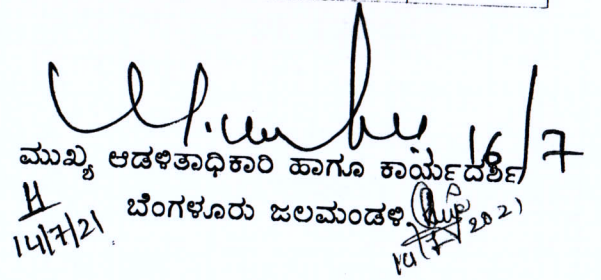 16/7
ಮುಖ್ಯ ಆಡಳಿತಾಧಿಕಾರಿ ಹಾಗೂ ಕಾರ್ಯದರ್ಶಿ
ಬೆಂಗಳೂರು ಜಲಮಂಡಳಿ
14/7/21
14/7/2021